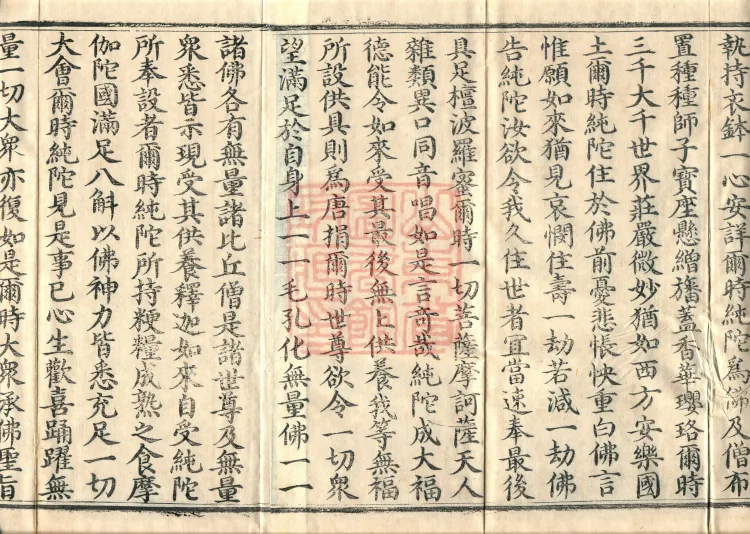 執持衣鉢一心安詳爾時純陀為佛及僧布
置種種師子寶座懸繒旛蓋香華瓔珞爾時
三千大千世界莊嚴微妙猶如西方安樂國
土爾時純陀住於佛前憂悲悵怏重白佛言
惟願如來猶見哀憫住壽一劫若減一劫佛
告純陀汝欲令我久住世者宜當速奉最後
具足檀波羅蜜爾時一切菩薩摩訶薩天人
雜類異口同音唱如是言奇哉純陀成大福
德能令如來受其最後無上供養我等無福
所設供具則為唐捐爾時世尊欲令一切衆
望滿足於自身上一一毛孔化無量佛一一
諸佛各有無量諸比丘僧是諸世尊及無量
衆悉皆示現受其供養釋迦如來自受純陀
所奉設者爾時純陀所持粳糧成熟之食摩
伽陀國滿足八斛以佛神力皆悉充足一切
大會爾時純陀見是事已心生歡喜踊躍無
量一切大衆亦復如是爾時大衆承佛聖旨